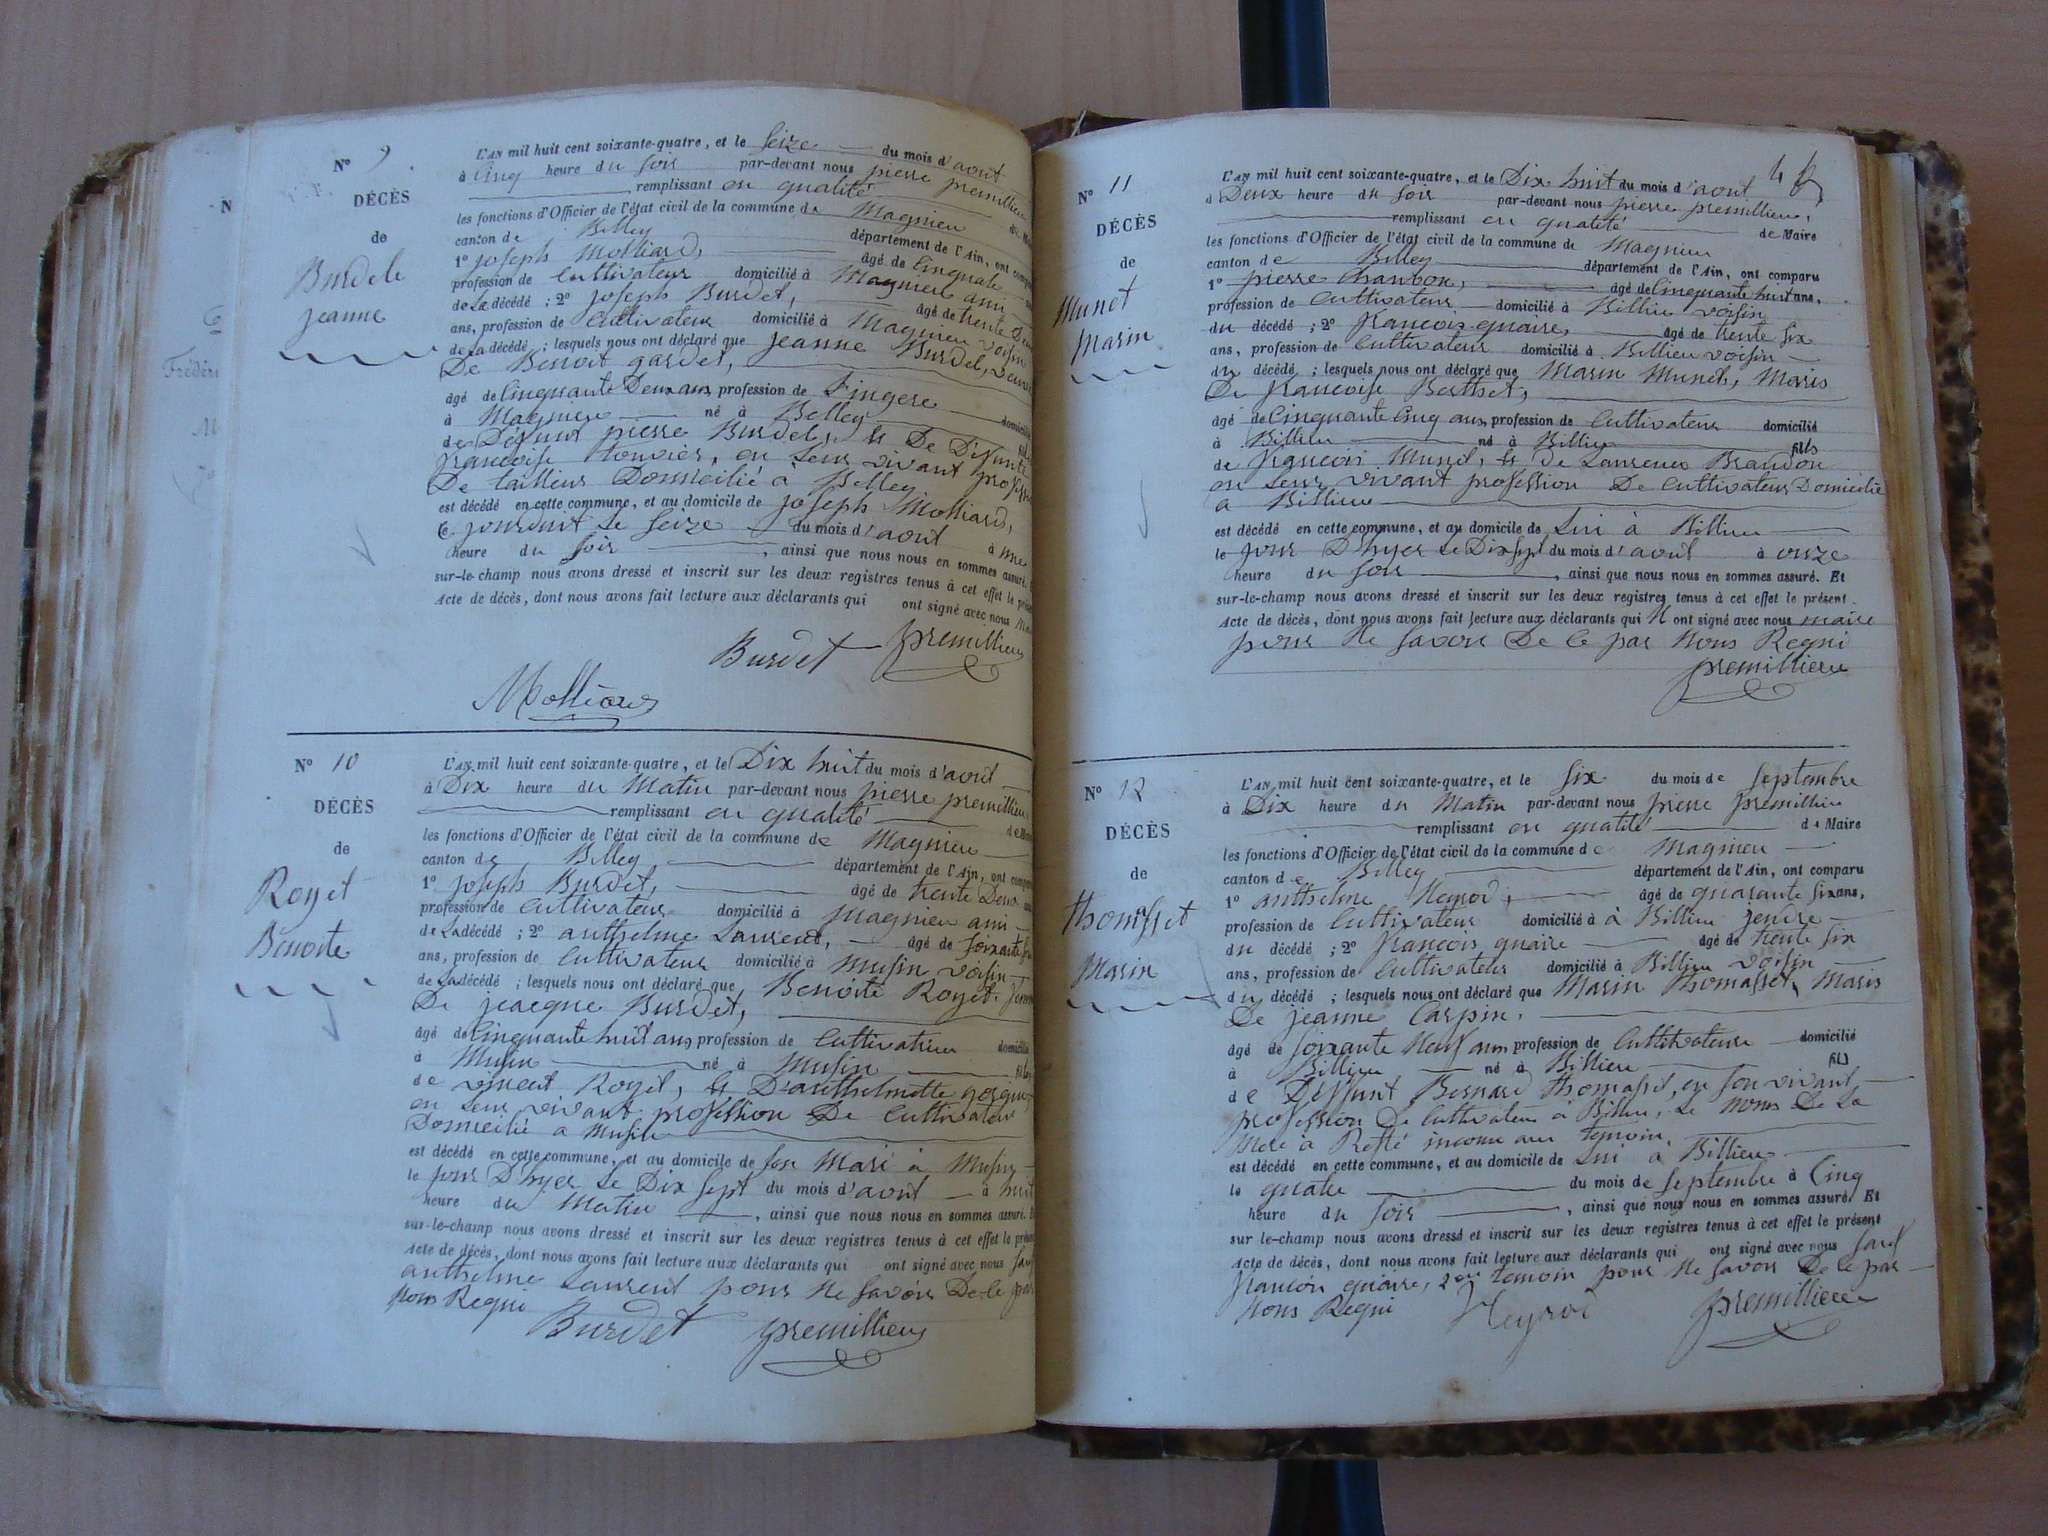 N° 9
DÉCÈS
de
Burdet
jeanne
L'AN mil huit cent soixante-quatre, et le Seize du mois d'aout
à Cinq heure du soir par-devant nous pierre premillieu
remplissant en qualité
les fonctions d'Officier de l'état civil de la commune de Magnieu de Maire
canton de Belley département de l'Ain, ont comparu
1° joseph Molliard, âgé de Cinquante
profession de Cultivateur domicilié à Magnieu ami
de La décédé ; 2° joseph Burdet, âgé de trente Deux
ans, profession de Cultivateur domicilié à Magnieu voisin
de La décédé ; lesquels nous ont déclaré que jeanne Burdet, veuve
De Benoit gardet,
âgé de Cinquante Deux ans, profession de Lingere domicilié
à Magnieu né à Belley
de Défunt pierre Burdet, et De Défunte
françoise Louvier, en Leur vivant profession
De tailleur Domicilié à Belley
est décédé en cette commune, et au domicile de joseph Molliard,
Ce jourd'huit Le Seize du mois d'aout à une
heure du Soir, ainsi que nous nous en sommes assuré. Et
sur-le-champ nous avons dressé et inscrit sur les deux registres tenus à cet effet le présent
Acte de décès, dont nous avons fait lecture aux déclarants qui ont signé avec nous
Burdet premillieu
Molliard
N° 10
DÉCÈS
de
Royet
Benoite
L'AN mil huit cent soixante-quatre, et le Dix huit du mois d'aout
à Dix heure du Matin par-devant nous pierre premillieu
remplissant en qualité de Maire
les fonctions d'Officier de l'état civil de la commune de Magnieu
canton de Belley département de l'Ain, ont comparu
1° joseph Burdet, âgé de trente Deux ans
profession de Cultivateur domicilié à Magnieu ami
de La décédé ; 2° anthelme Laurent, âgé de soixante
ans, profession de Cultivateur domicilié à Musin voisin
de La décédé ; lesquels nous ont déclaré que Benoite Royet, femme
De jeacque Burdet,
âgé de Cinquante huit ans, profession de Cultivatrice domicilié
à Musin né à Musin
de vincent Royet, et D'anthelmette
en Leur vivant profession De Cultivateur
Domicilié a Musin
est décédé en cette commune, et au domicile de son Mari à Musin
le jour D'hyer Le Dix Sept du mois d'aout à huit
heure du Matin, ainsi que nous nous en sommes assuré. Et
sur-le-champ nous avons dressé et inscrit sur les deux registres tenus à cet effet le présent
Acte de décès, dont nous avons fait lecture aux déclarants qui ont signé avec nous Sauf
anthelme Laurent pour Ne Savoir De Ce par
Nous Requi
Burdet premillieu
N° 11
DÉCÈS
de
Munet
Marin
L'AN mil huit cent soixante-quatre, et le Dix huit du mois d'aout
à Deux heure du Soir par-devant nous pierre premillieu,
remplissant en qualité de Maire
les fonctions d'Officier de l'état civil de la commune de Magnieu
canton de Belley département de l'Ain, ont comparu
1° pierre Chandon, âgé de Cinquante huit ans,
profession de Cultivateur domicilié à Billieu voisin
du décédé ; 2° francois quaire, âgé de trente Six
ans, profession de Cultivateur domicilié à Billieu voisin
du décédé ; lesquels nous ont déclaré que Marin Munet, Maris
De francoise Berthet,
âgé de Cinquante Cinq ans, profession de Cultivateur domicilié
à Billieu né à Billieu fils
de francois Munet, et de Laurence Brandon
en Leur vivant profession De Cultivateur Domicilié
a Billieu
est décédé en cette commune, et au domicile de Lui à Billieu
le jour D'hyer Le Dix Sept du mois d'aout à onze
heure du Soir, ainsi que nous nous en sommes assuré. Et
sur-le-champ nous avons dressé et inscrit sur les deux registres tenus à cet effet le présent
Acte de décès, dont nous avons fait lecture aux déclarants qui N ont signé avec nous maire
pour Ne Savoir De Ce par Nous Requi
premillieu
N° 12
DÉCÈS
de
thomasset
Marin
L'AN mil huit cent soixante-quatre, et le Six du mois de Septembre
à Dix heure du Matin par-devant nous pierre premillieu
remplissant en qualité de Maire
les fonctions d'Officier de l'état civil de la commune de Magnieu
canton de Belley département de l'Ain, ont comparu
1° anthelme Neyrod, âgé de quarante Six ans,
profession de Cultivateur domicilié à à Billieu jendre
du décédé ; 2° francois quaire âgé de trente Six
ans, profession de Cultivateur domicilié à Billieu voisin
du décédé ; lesquels nous ont déclaré que Marin thomasset, Maris
De jeanne Carpin.
âgé de Soixante Neuf ans profession de Cultivateur domicilié
à Billieu né à Billieu fils
de Deffunt Bernard thomasset, en son vivant
profession De Cultivateur à Billieu, Le Nom De La
Mere à Resté inconu aux temoin.
est décédé en cette commune, et au domicile de Lui à Billieu
le quatre du mois de Septembre à Cinq
heure du Soir, ainsi que nous nous en sommes assuré. Et
sur le-champ nous avons dressé et inscrit sur les deux registres tenus à cet effet le présent
Acte de décès, dont nous avons fait lecture aux déclarants qui ont signé avec nous Sauf
francois quaire, 2me temoin pour Ne Savoir De Ce par
Nous Requi Neyrod premillieu